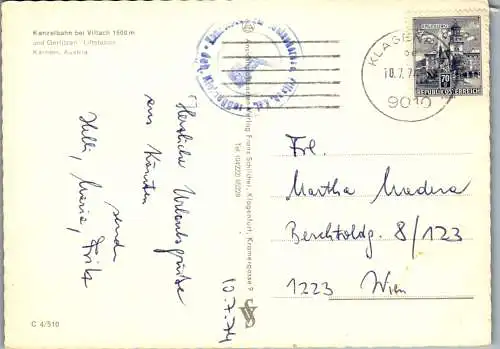 Kanzelbahn bei Villach 1500 m
und Gerlitzen - Liftstation
Kärnten, Austria
Herzliche Urlaubsgrüße
aus Kärnten
sendet
Helli, Maria, Fritz
10.7.74
C 4/510
Franz Schilcher, Klagenfurt, Kramergasse 9
KLAGENFURT
10.7.74
9010
70
REPUBLIK ÖSTERREICH
Frl.
Martha Madera
Berchtoldg. 8/123
1223 Wien